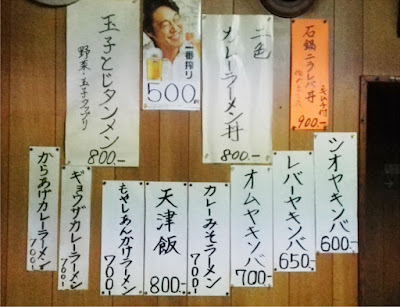 玉子とじタンメン
野菜・玉子タップリ
800.-
新 一番搾り
500円
二色
カレーラーメン丼
800.-
石鍋ニラレバ丼
900.-
からあげカレーラーメン
700-
ギョウザカレーラーメン
700-
もやしあんかけラーメン
700-
天津飯
800-
カレーみそラーメン
700-
オムヤキソバ
700-
レバーヤキソバ
650.-
シオヤキソバ
600.-